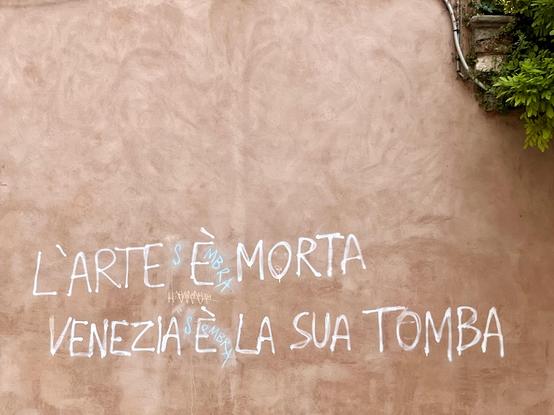 L`ARTE S È MBRA MORTA
VENEZIA S È MBRA LA SUA TOMBA